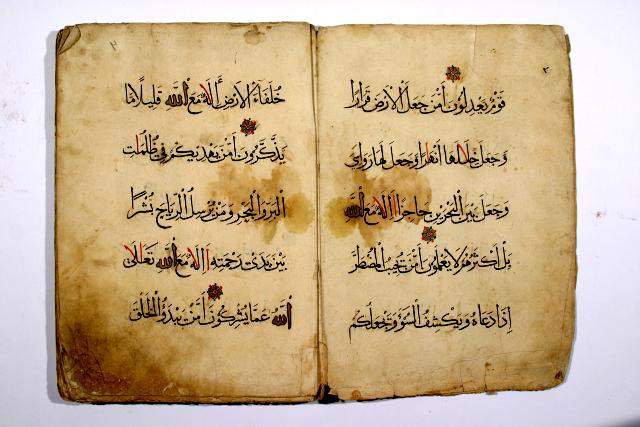 قوم يعدلون أمن جعل الأرض قرارا
وجعل خلالها أنهارا وجعل لها رواسي
وجعل بين البحرين حاجزا أإله مع الله
بل أكثرهم لا يعلمون أمن يجيب المضطر
إذا دعاه ويكشف السوء ويجعلكم
خلفاء الأرض أإله مع الله قليلا ما
يذكرون أمن يهديكم في ظلمات
البر والبحر ومن يرسل الرياح نشرا
بين يدي رحمته أإله مع الله تعالى
الله عما يشركون أمن يبدؤ الخلق